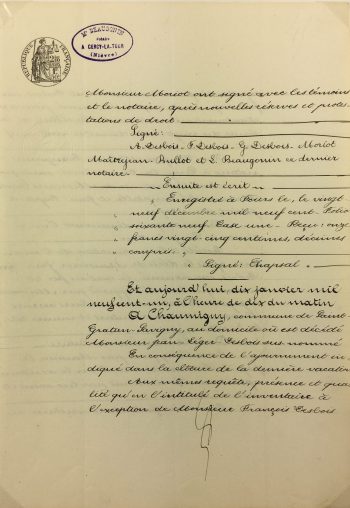 RÉPUBLIQUE FRANÇAISE
Me BEAUGONIN
notaire
A CERCY-LA-TOUR
(Nièvre)
Monsieur Moriot ont signé avec les témoins
et le notaire, après nouvelles réserves et protes
tations de droit.
Signé:
A. Desbois - F. Desbois - G. Desbois - Moriot
Maitrejean - Bullot et L. Beaugonin ce dernier
notaire.
Ensuite est écrit
Enregistré à le, le vingt
neuf décembre mil neuf cent. Folio
soixante neuf Case une - Reçu: onze
francs vingt cinq centimes, décimes
compris.
Signé: Chapsal
Et aujourd'hui, dix janvier mil
neuf cent un, à l'heure de dix du matin
A Chaumigny, commune de Saint
Gratien Savigny, au domicile où est décédé
Monsieur Jean Léger Desbois sus nommé
En conséquence de l'ajournement in
diqué dans la clôture de la dernière vacation
Aux mêmes requête, présence et qua
lité qu'en l'intitulé de l'inventaire à
l'exception de Monsieur François Desbois